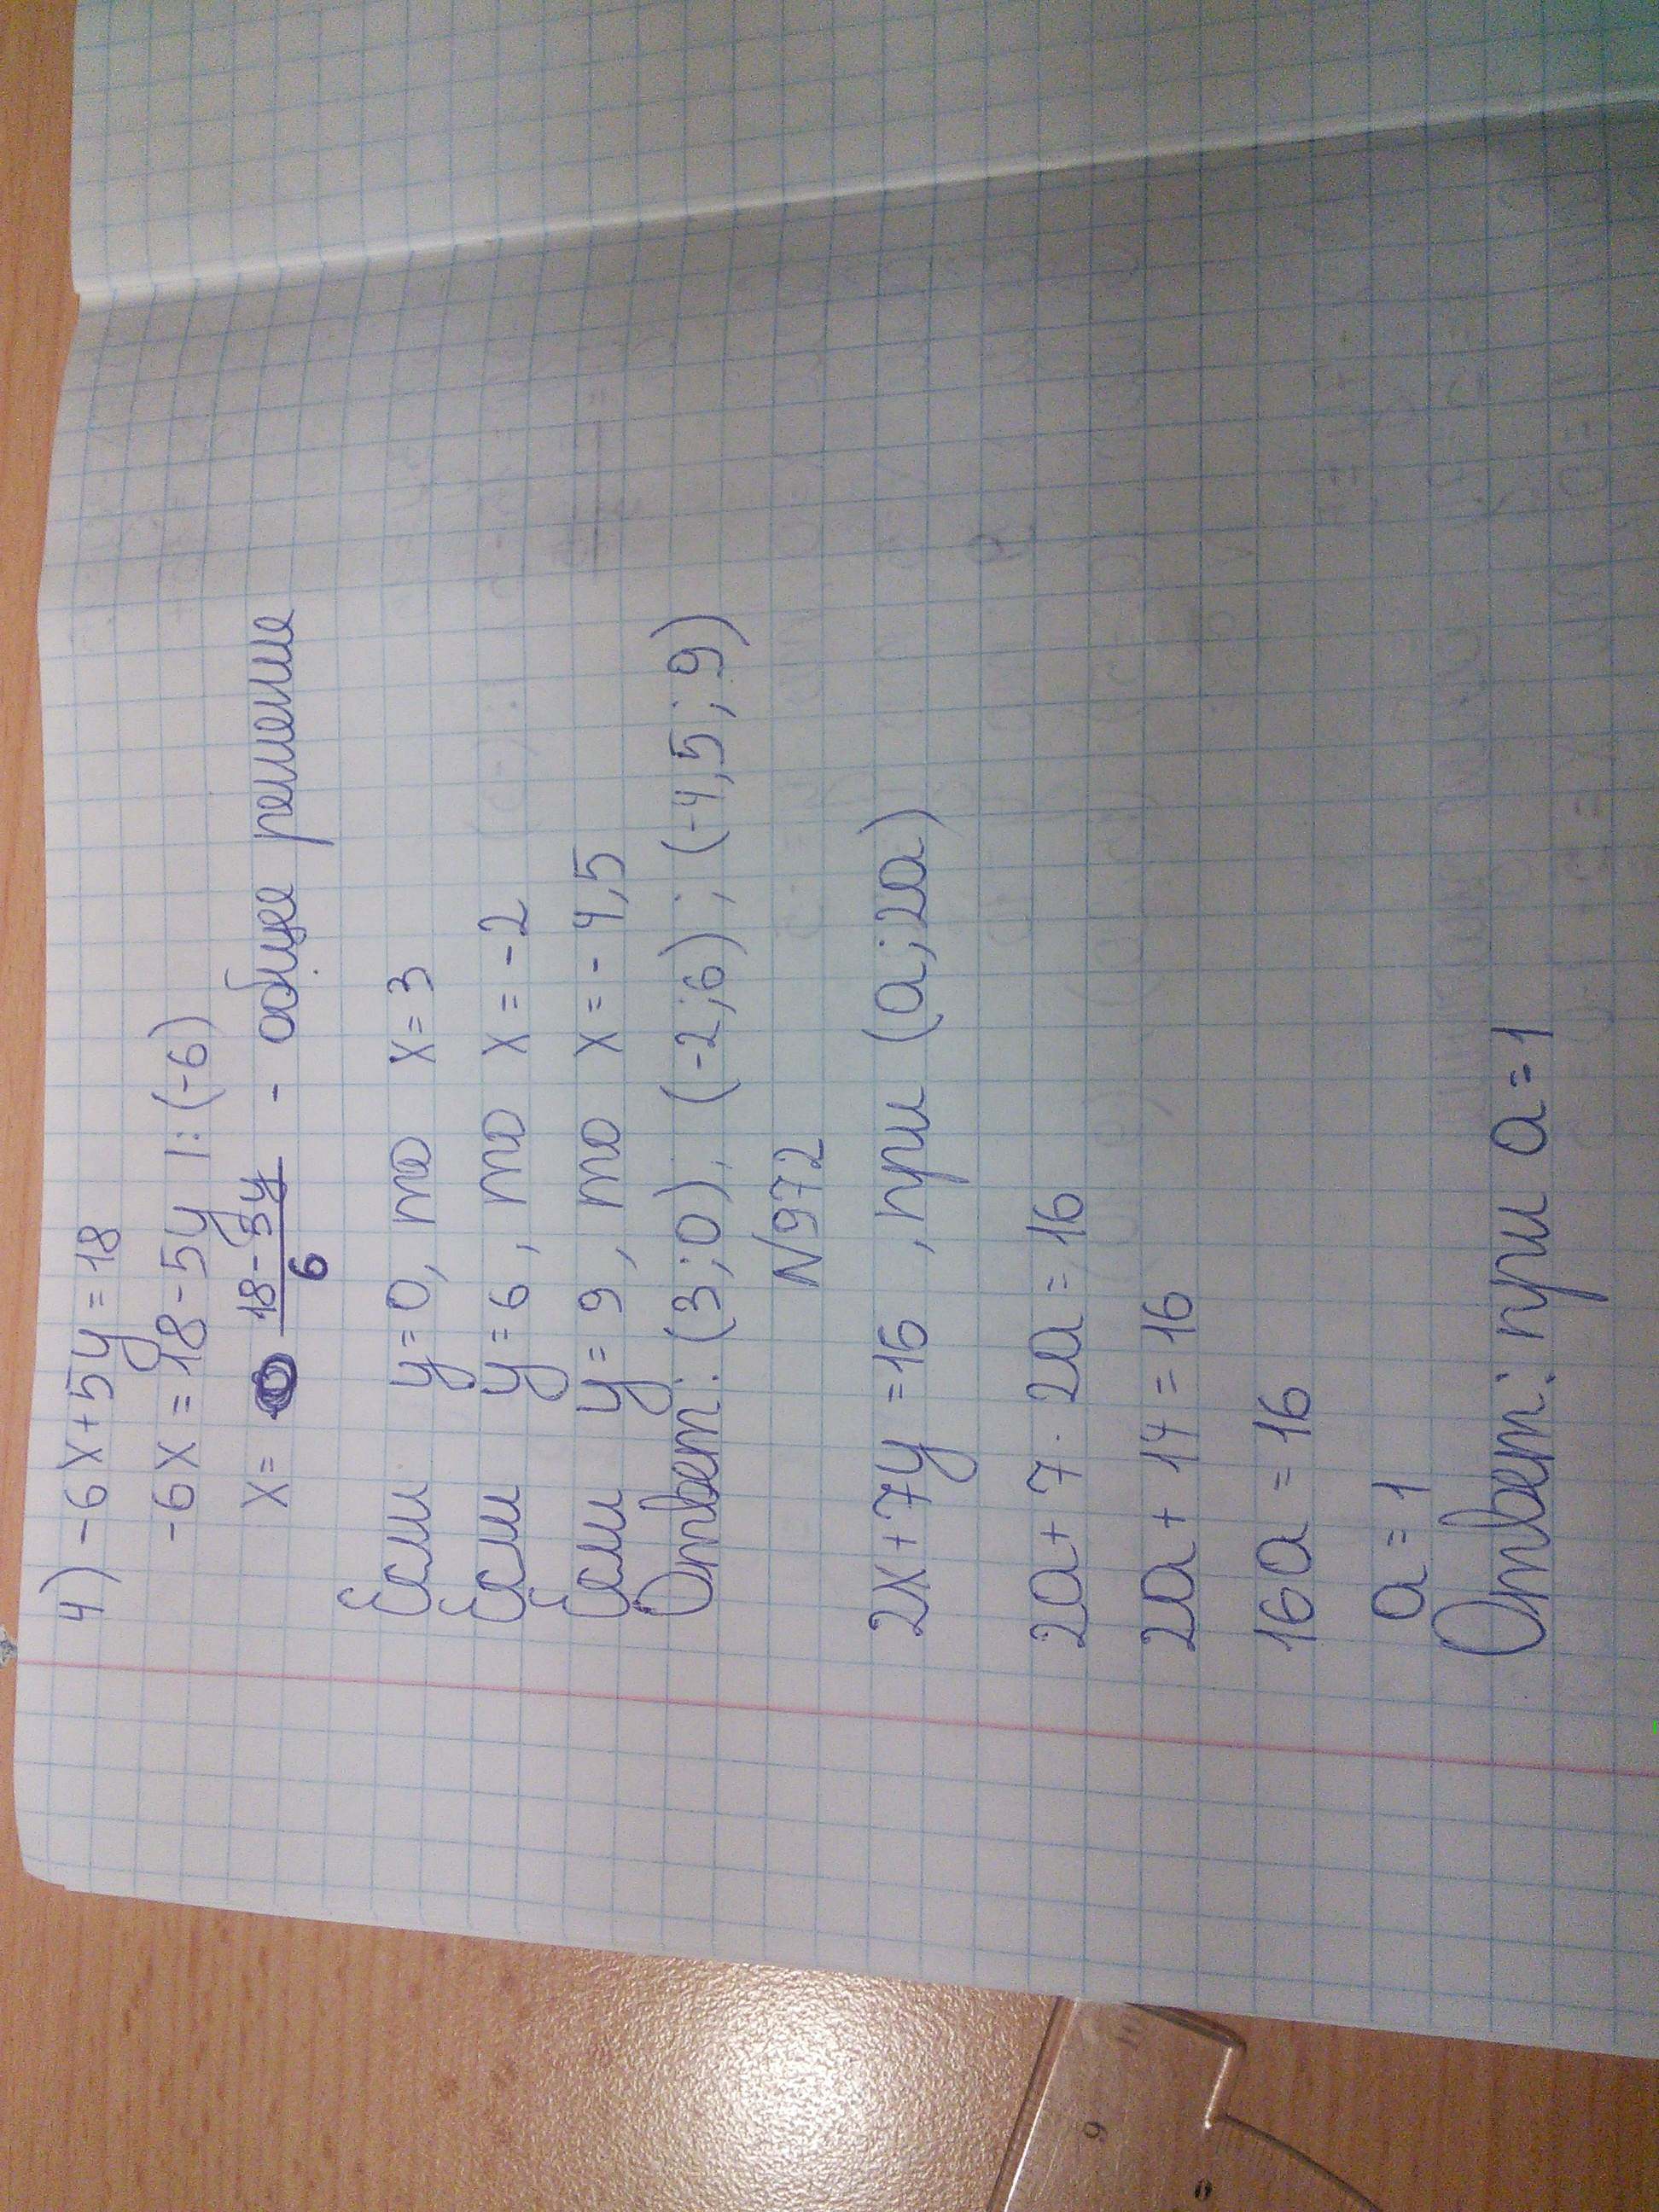 4) -6x+5y=18
-6x=18-5y |:(-6)
x= 18-5y/6 - общее решение
Если y=0, то x=3
Если y=6, то x=-2
Если y=9, то x=-4,5
Ответ: (3;0); (-2;6); (-4,5;9)
N972
2x+7y=16, при (a;2a)
2a+7·2a=16
2a+14=16
16a=16
a=1
Ответ: при a=1